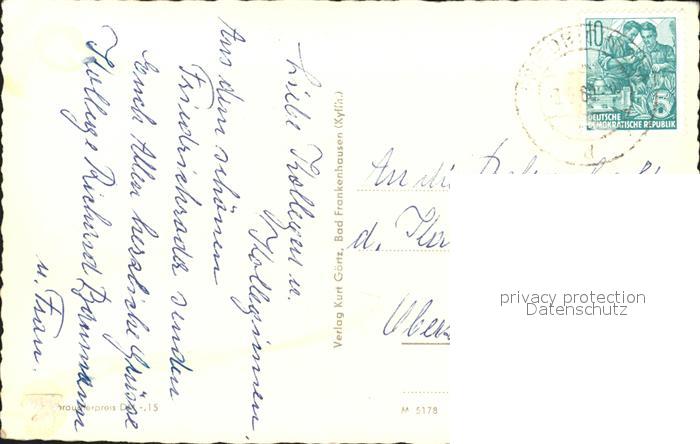 Liebe Kollegen u.
Kolleginnen.
Aus dem schönen
Friedrichroda senden
Euch Allen herzliche Grüsse
Kollege Richard
u. Frau.
Verlag Kurt Görtz, Bad Frankenhausen (Kyffh.)
An die
d.
M 5178
10
DEUTSCHE
DEMOKRATISCHE REPUBLIK
privacy protection
Datenschutz